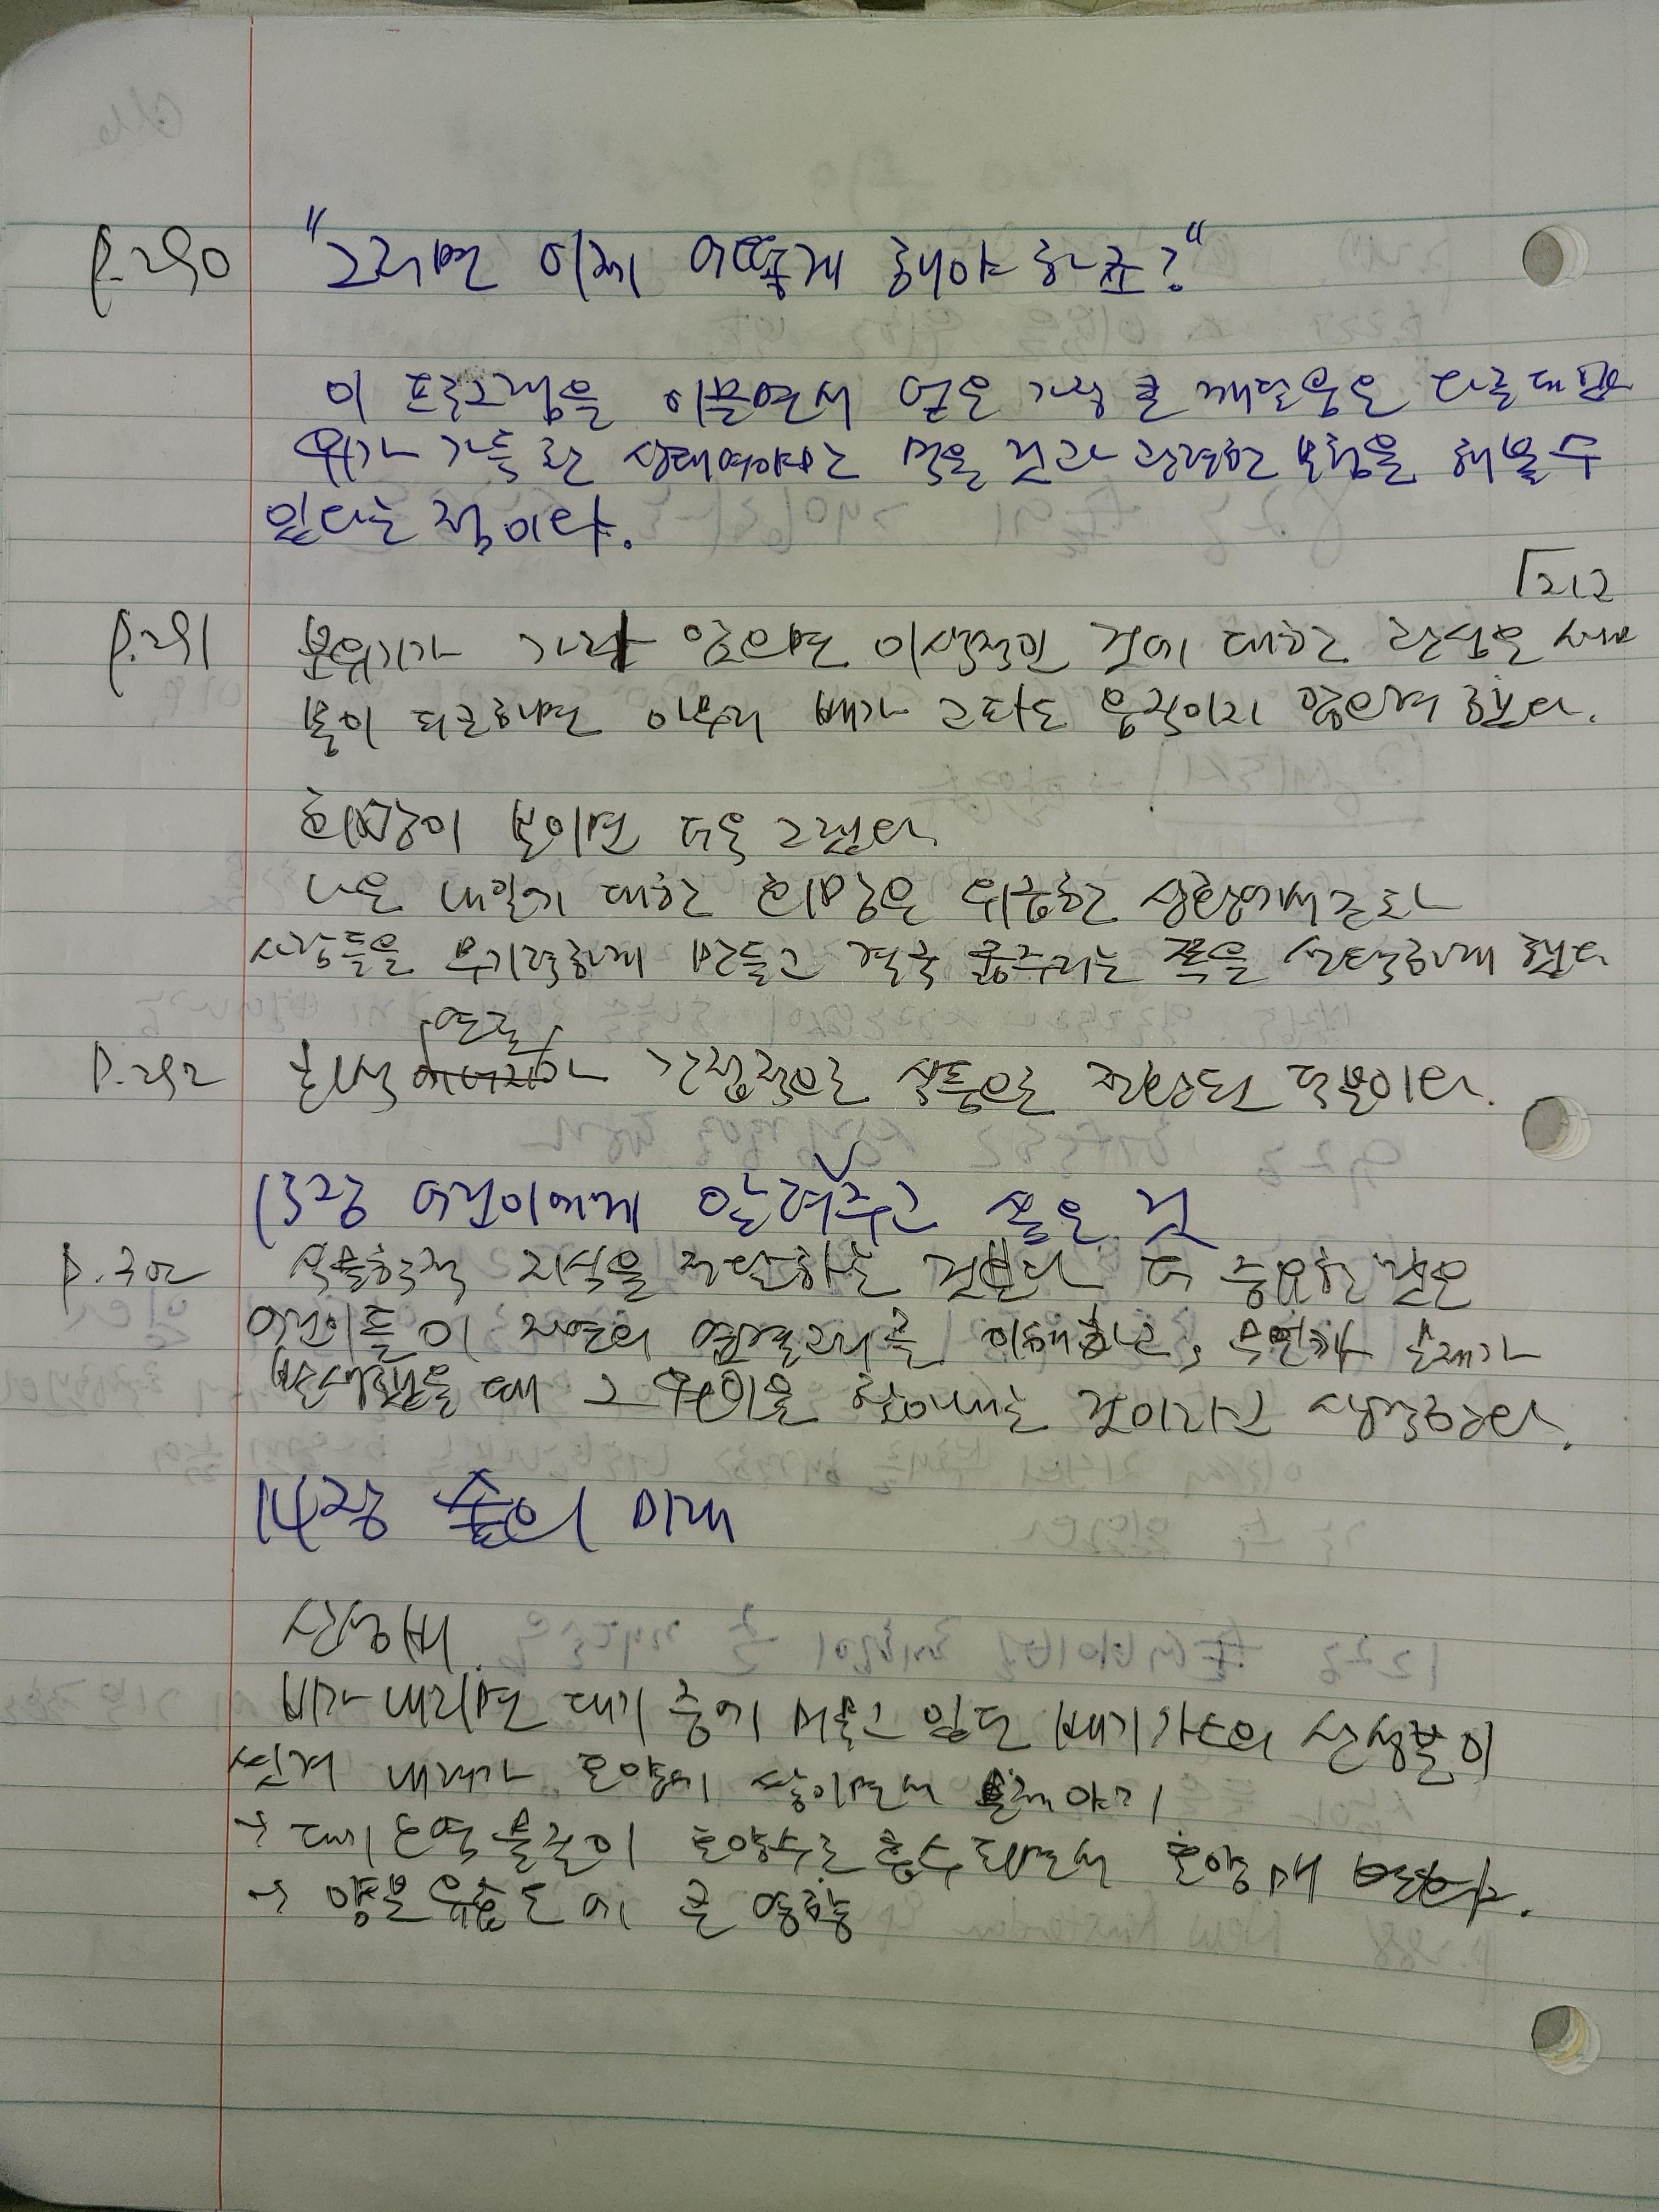 p.290 "그러면 이제 어떻게 해야 하죠?"
이 프로그램을 이끌면서 얻은 가장 큰 깨달음은 다들
위가 가득 찬 상태여야만 먹을 것과 관련한 모험을 해볼 수
있다는 점이다.
p.291 분위기가 가라앉으면 이상적인 것에 대한 관심은
몸이 피곤해면 아무리 배가 고파도 움직이지 않으려 했다.
희망이 보이면 더욱 그랬다
나은 내일에 대한 희망은 위급한 상황에서조차
사람들을 무기력하게 만들고 결국 굶주리는 쪽을 선택하게 했다
연료
p.292 화석 간접적으로 식품으로 전환된 덕분이다.
13장 어린이에게 알려주고 싶은 것
p.302 식물학적 지식을 전달하는 것보다 더 중요한 것은
어린이들이 자연의 연결고리를 이해하고, 무언가 문제가
발생했을 때 그 원인을 찾아내는 것이라고 생각한다.
14장 숲의 미래
산성비
비가 내리면 대기 중에 머물고 있던 배기가스의 산성물이
씻겨 내려가 토양에 쌓이면서 문제 야기
→ 대기 오염 물질이 토양수로 흡수되면서 토양 pH 변화.
→ 양분 유효도에 큰 영향